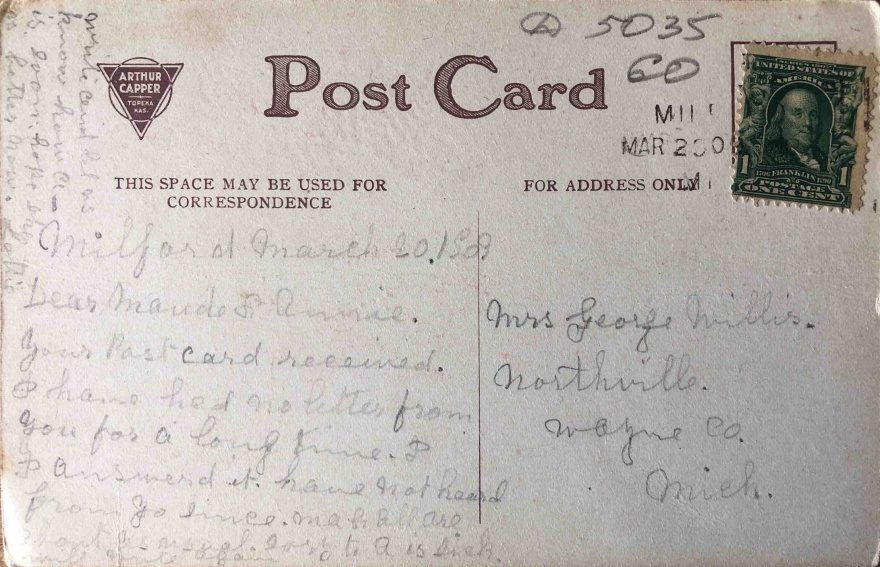 D 5035
60
ARTHUR
CAPPER
TOPEKA
KAS.
Post Card
MAR 2
UNITED STATES OF
AMERICA
1 1706 FRANKLIN 1790 1
POSTAGE
ONE CENT
THIS SPACE MAY BE USED FOR
CORRESPONDENCE
FOR ADDRESS ONLY
Milford March 20, 1909
Dear Maude & Annie.
Your Post card received.
I have had no letter from
you for a long time. I
I answerd it. have not heard
from yo since. all are
about as usual. to A is sick.
will write again
write card let us
know how
is
letter now.
Mrs George Willis.
Northville.
Wayne Co.
Mich.